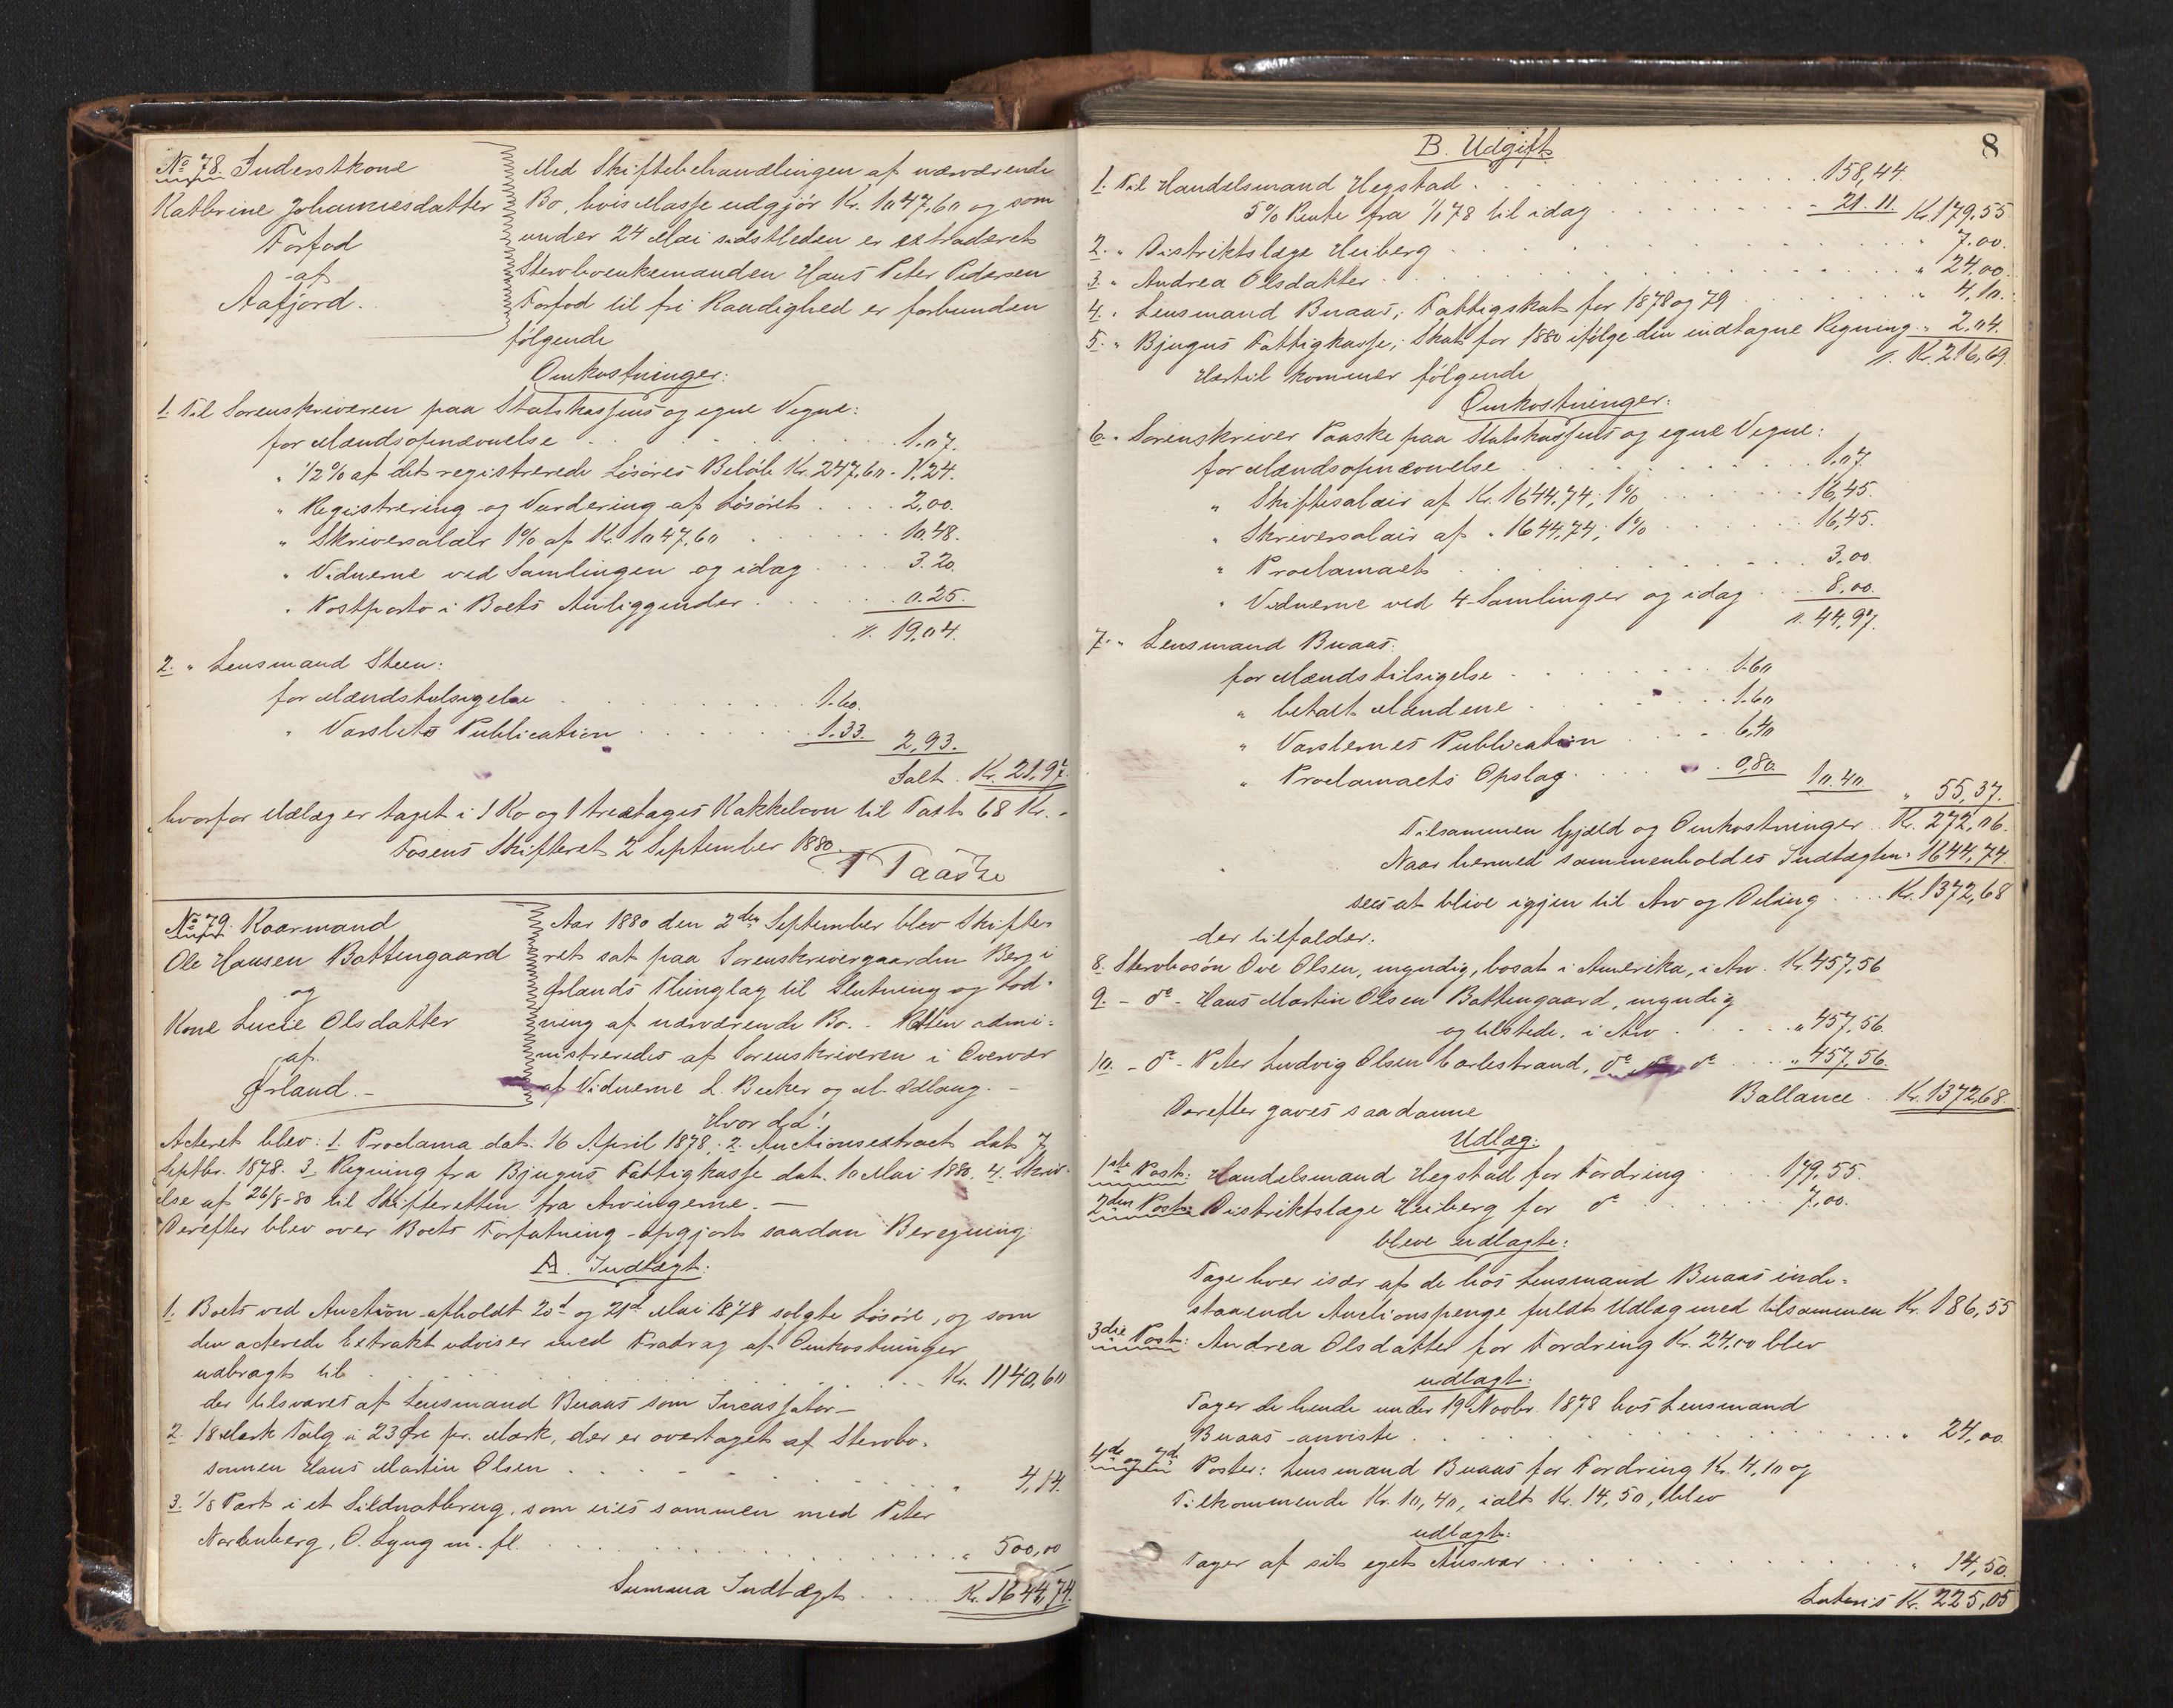 No 78. Inderstkone
Kathrine Johannesdatter
Forfod
af
Aafjord.
Med Skiftebehandlingen af nærværende
Bo, hvis Masse udgjör Kr. 1047,60 og som
under 24 Mai sidstleden er extraderet
Stervboenkemanden Hans Peter Pedersen
Forfod til fri Raadighed er forbunden
følgende
Omkostninger:
1. Til Sorenskriveren paa Statskassens og egne Vegne:
for Mændsopnævnelse . . . 1.07.
" 1/2 % af det registrerede Lösöres Belöb Kr. 247,60 - 1.24.
" Registrering og Vurdering af Lösöret . . . . 2,00.
" Skriversalair 1% af Kr. 1047,60 . . . 10,48.
" Vidnerne ved Samlingen og idag . . . . 3.20.
" Postporto i Boets Anliggender . . . 0.25.
". 19,04.
2. " Lensmand Steen:
for Mændstilsigelse . . . 1.60.
" Varslets Publication . . . 1.33. 2,93.
Ialt . Kr. 21,97.
hvorfor Udlæg er taget i 1 Ko og 1 treetages Kakkelovn til Taxt 68 Kr. -
Fosens Skifteret 2 September 1880.
Paaske
No 79. Kaarmand
Ole Hansen Battengaard
og
Kone Lucie Olsdatter
af
Ørland. -
Aar 1880 den 2den September blev Skifte-
ret sat paa Sorenskrivergaarden Berg i
Ørlands Thinglag til Slutning og Lod-
ning af nærværende Bo. - Retten admi-
nistreredes af Sorenskriveren i Overvær
af Vidnerne L. Becker og M. Ødlaug. -
Hvor da!
Acteret blev: 1. Proclama dat. 16 April 1878. 2. Auctionsextract dat. 7
Septbr. 1878. 3. Regning fra Bjugns Fattigkasse dat. 10 Mai 1880. 4. Skriv-
else af 26/8-80 til Skifteretten fra Arvingerne. -
Derefter blev over Boets Forfatning opgjort saadan Beregning:
A. Indtægt:
1. Boets ved Auction afholdt 20d og 21d Mai 1878 solgte Lösöre, og som
den acterede Extrakt udviser med Fradrag af Omkostninger
udbragt til . . . Kr. 1140,60
der tilsvares af Lensmand Buaas som Incassator -
2. 18 Mark Talg a 23 Øre pr. Mark, der er overtaget af Stervbo-
sønnen Hans Martin Olsen . . . " 4,14.
3. 1/8 Part i et Sildnotbrug, som eies sammen med Peter
Norbenberg, O. Lyng m. fl. . . . " 500,00
Summa Indtægt . . . . . Kr. 1644,74.
8
B. Udgift
1. Til Handelsmand Hegstad . . . 158,44
5% Rente fra 1/1 78 til idag . . . 21.11. Kr. 179,55
2. " Distriktslæge Heiberg . . . " 7.00.
3. " Andrea Olsdatter . . . " 24,00.
4. " Lensmand Buaas, Fattigskat for 1878 og 79 . . . " 4,10.
5. " Bjugns Fattigkasse, Skat for 1880 ifølge den indtagne Regning. " 2.04.
". Kr. 216,69.
Hertil kommer følgende
Omkostninger:
6. " Sorenskriver Paaske paa Statskassens og egne Vegne:
for Mændsopnævnelse . . . 1.07
" Skiftesalair af Kr. 1644,74, 1% . . . 16,45.
" Skriversalair af " 1644,74, 1% . . . 16,45.
" Proclamaet . . . 3,00
" Vidnerne ved 4 Samlinger og idag . . . 8,00.
". 44,97.
7. " Lensmand Buaas:
for Mændstilsigelse . . . 1.60
" betalt Mændene . . . 1.60
" Varslernes Publication . . . 6,40
" Proclamaets Opslag . . . 0,80. 10.40. " 55,37.
Tilsammen Gjæld og Omkostninger . Kr. 272,06.
Naar hermed sammenholdes Indtægten " 1644,74.
sees at blive igjen til Arv og Deling . . . Kr. 1372,68
der tilfalder:
8. Stervbosön Ove Olsen, myndig, bosat i Amerika, i Arv. Kr. 457,56
9. - do - Hans Martin Olsen Battengaard, myndig
og tilstede, i Arv . . . " 457,56.
10. - do - Peter Ludvig Olsen Carlestrand, do do . . . " 457,56.
Ballance . Kr. 1372,68.
Derefter gaves saadanne
Udlæg:
1ste Post: Handelsmand Hegstad for Fordring . 179,55.
2den Post: Distriktslæge Heiberg for do . . . 7,00.
bleve udlagte:
Tage hver især af de hos Lensmand Buaas inde-
staaende Auctionspenge fuldt Udlæg med tilsammen Kr. 186,55
3die Post: Andrea Olsdatter for Fordring Kr. 24,00 blev
udlagt:
Tager de hende under 19 Novbr. 1878 hos Lensmand
Buaas anviste . . . " 24,00.
4de og 7d Poster: Lensmand Buaas for Fordring Kr. 4,10 og
Tilkommende Kr. 10,40, ialt Kr. 14,50, blev
udlagt:
Tager af sit eget Ansvar . . . " 14,50.
Lateris Kr. 225,05